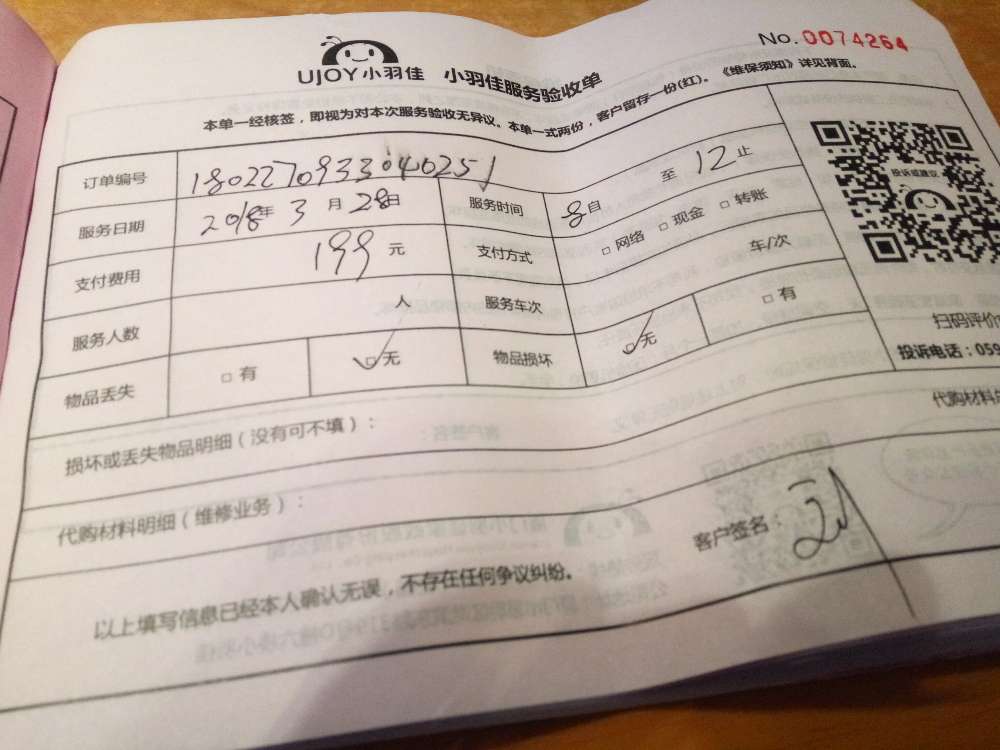 No. 0074264
UJOY小羽佳 小羽佳服务验收单
本单一经核签，即视为对本次服务验收无异议。本单一式两份，客户留存一份(红)。《维保须知》详见背面。
订单编号 1802270933040251
服务日期 2018年 3 月 28日 服务时间 8自 至 12 止
支付费用 199 元 支付方式 □ 网络 □ 现金 □ 转账
服务人数 人 服务车次 车/次
物品丢失 □ 有 □无 物品损坏 □无 □有
投诉或建议
扫码评价
投诉电话：059
损坏或丢失物品明细（没有可不填）：
代购材料
代购材料明细（维修业务）：
以上填写信息已经本人确认无误，不存在任何争议纠纷。
客户签名：